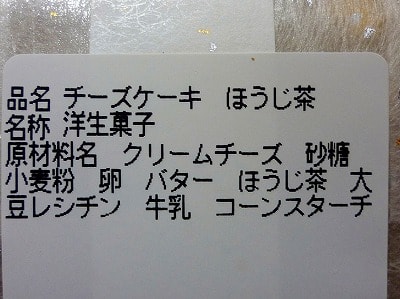 品名 チーズケーキ　ほうじ茶
名称 洋生菓子
原材料名　クリームチーズ　砂糖
小麦粉　卵　バター　ほうじ茶　大
豆レシチン　牛乳　コーンスターチ